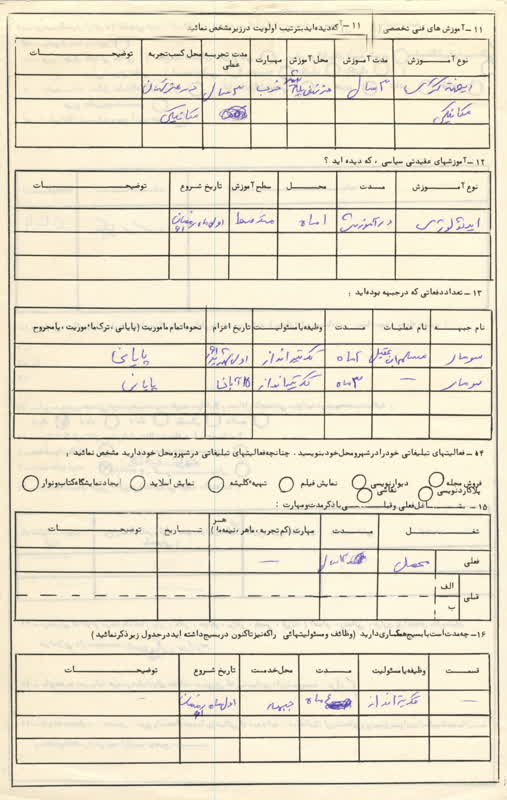 ۱۱ - آموزش های فنی تخصصی ۱۱ - که دیده اید بترتیب اولویت در زیر مشخص نمائید
نوع آموزش مدت آموزش محل آموزش مهارت مدت تجربه عملی محل کسب تجربه توضیحات
۳ سال خوب ۳ سال
مکانیک مکانیک
۱۲ - آموزشهای عقیدتی سیاسی ، که دیده اید ؟
نوع آموزش مدت محل سطح آموزش تاریخ شروع توضیحات
ایدئولوژی ۱ ماه متوسط اول ماه رمضان ۶۱
۱۳ - تعداد دفعاتی که در جبهه بوده اید :
نام جبهه نام عملیات مدت وظیفه یا مسئولیت تاریخ اعزام نحوه اتمام ماموریت (پایانی ، ترک ماموریت ، یا مجروح
سومار مسلم بن عقیل تک تیرانداز پایانی
سومار — ۳ ماه تک تیرانداز پایانی
۱۴ - فعالیتهای تبلیغاتی خود را در شهر و محل خود بنویسید . چنانچه فعالیتهای تبلیغاتی در شهر و محل خود دارید مشخص نمائید :
فروش مجله دیوارنویسی نمایش فیلم تهیه کلیشه نمایش اسلاید ایجاد نمایشگاه کتاب و نوار
پلاکاردنویسی نقاشی
۱۵ - شغل فعلی و قبلی با ذکر مدت و مهارت :
شغل مدت مهارت (کم تجربه ، ماهر ، نیمه ماهر) تاریخ توضیحات
فعلی محصل —
قبلی الف
ب
۱۶ - چه مدت است با بسیج همکاری دارید (وظائف و مسئولیتهائی را که نیز تاکنون در بسیج داشته اید در جدول زیر ذکر نمائید)
قسمت وظیفه یا مسئولیت مدت محل خدمت تاریخ شروع توضیحات
— تک تیرانداز ماه جبهه اول ماه رمضان ۶۱ —